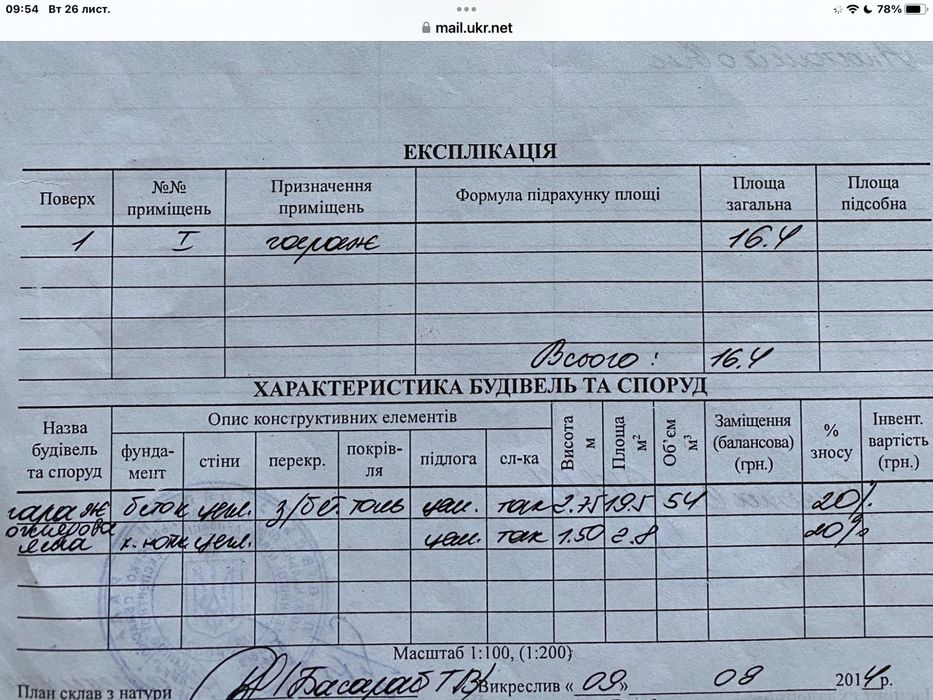 09:54 Вт 26 лист.
78%
mail.ukr.net
ЕКСПЛІКАЦІЯ
Поверх
№№ приміщень
Призначення приміщень
Формула підрахунку площі
Площа загальна
Площа підсобна
1 I гараж 16.4
Всього: 16.4
ХАРАКТЕРИСТИКА БУДІВЕЛЬ ТА СПОРУД
Назва будівель та споруд
Опис конструктивних елементів
фунда-
мент
стіни
перекр.
покрів-
ля
підлога
сл-ка
Висота м
Площа м²
Об'єм м³
Заміщення (балансова) (грн.)
% зносу
Інвент. вартість (грн.)
гараж бетон цегл. з/бет толь цем. так 2.75 19.5 54 20%
оглядова яма цегл. цем. так 1.50 2.8 20%
Масштаб 1:100, (1:200)
План склав з натури /Басараб Т.В/ Викреслив «09» 08 2014 р.